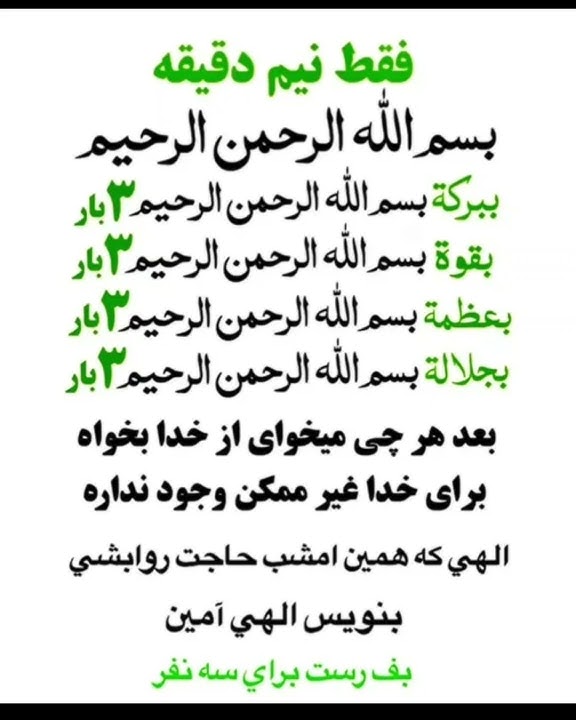 فقط نیم دقیقه
بسم الله الرحمن الرحیم
ببرکة بسم الله الرحمن الرحیم ۳بار
بقوة بسم الله الرحمن الرحیم ۳بار
بعظمة بسم الله الرحمن الرحیم ۳بار
بجلالة بسم الله الرحمن الرحیم ۳بار
بعد هر چی میخوای از خدا بخواه
برای خدا غیر ممکن وجود نداره
الهي که همین امشب حاجت روابشي
بنویس الهي آمین
بف رست براي سه نفر